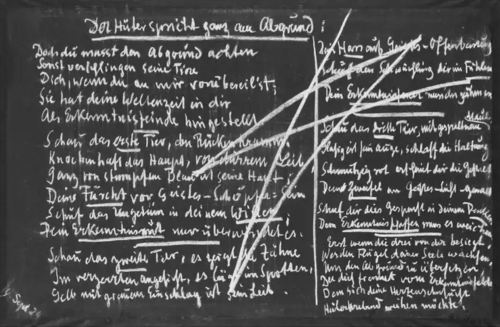 Der Hüter spricht ganz am Abgrund:
Doch du musst den Abgrund achten
Sonst verschlingen seine Tiere
Dich, wenn du an mir vorübereil'st;
Sie hat deine Weltenzeit in dir
Als Erkenntnisfeinde hingestellt.
Schau das erste Tier, den Rücken krumm,
Knochenhaft das Haupt, von dürrem Leib,
Ganz von stumpfem Blau ist seine Haut;
Deine Furcht vor Geistes-Schöpfer-Sein
Schuf das Ungetüm in deinem Willen;
Dein Erkenntnismut nur überwindet es.
Schau das zweite Tier, es zeigt die Zähne
Im verzerrten Angesicht, es lügt im Spotten,
Gelb mit grauem Einschlag ist sein Leib
Dein Hass auf Geistes-Offenbarung
Schuf den Schwächling dir im Fühlen
Dein Erkenntnisfeuer muss ihn zähmen
Schau das dritte Tier, mit gespaltnem Maule
Glasig ist sein Auge, schlaff die Haltung
Schmutzig rot erscheint dir die Gestalt
Dein Zweifel an Geistes-Licht-Gewalt
Schuf dir dies Gespenst in deinem Denken
Dem Erkenntnisschaffen muss es weichen
Erst wenn die drei von dir besiegt
Werden Flügel deiner Seele wachsen
Um den Abgrund zu übersetzen
Der dich trennet vom Erkenntnisfelde
Dem sich deine Herzenssehnsucht
Heilerstrebend weihen möchte.